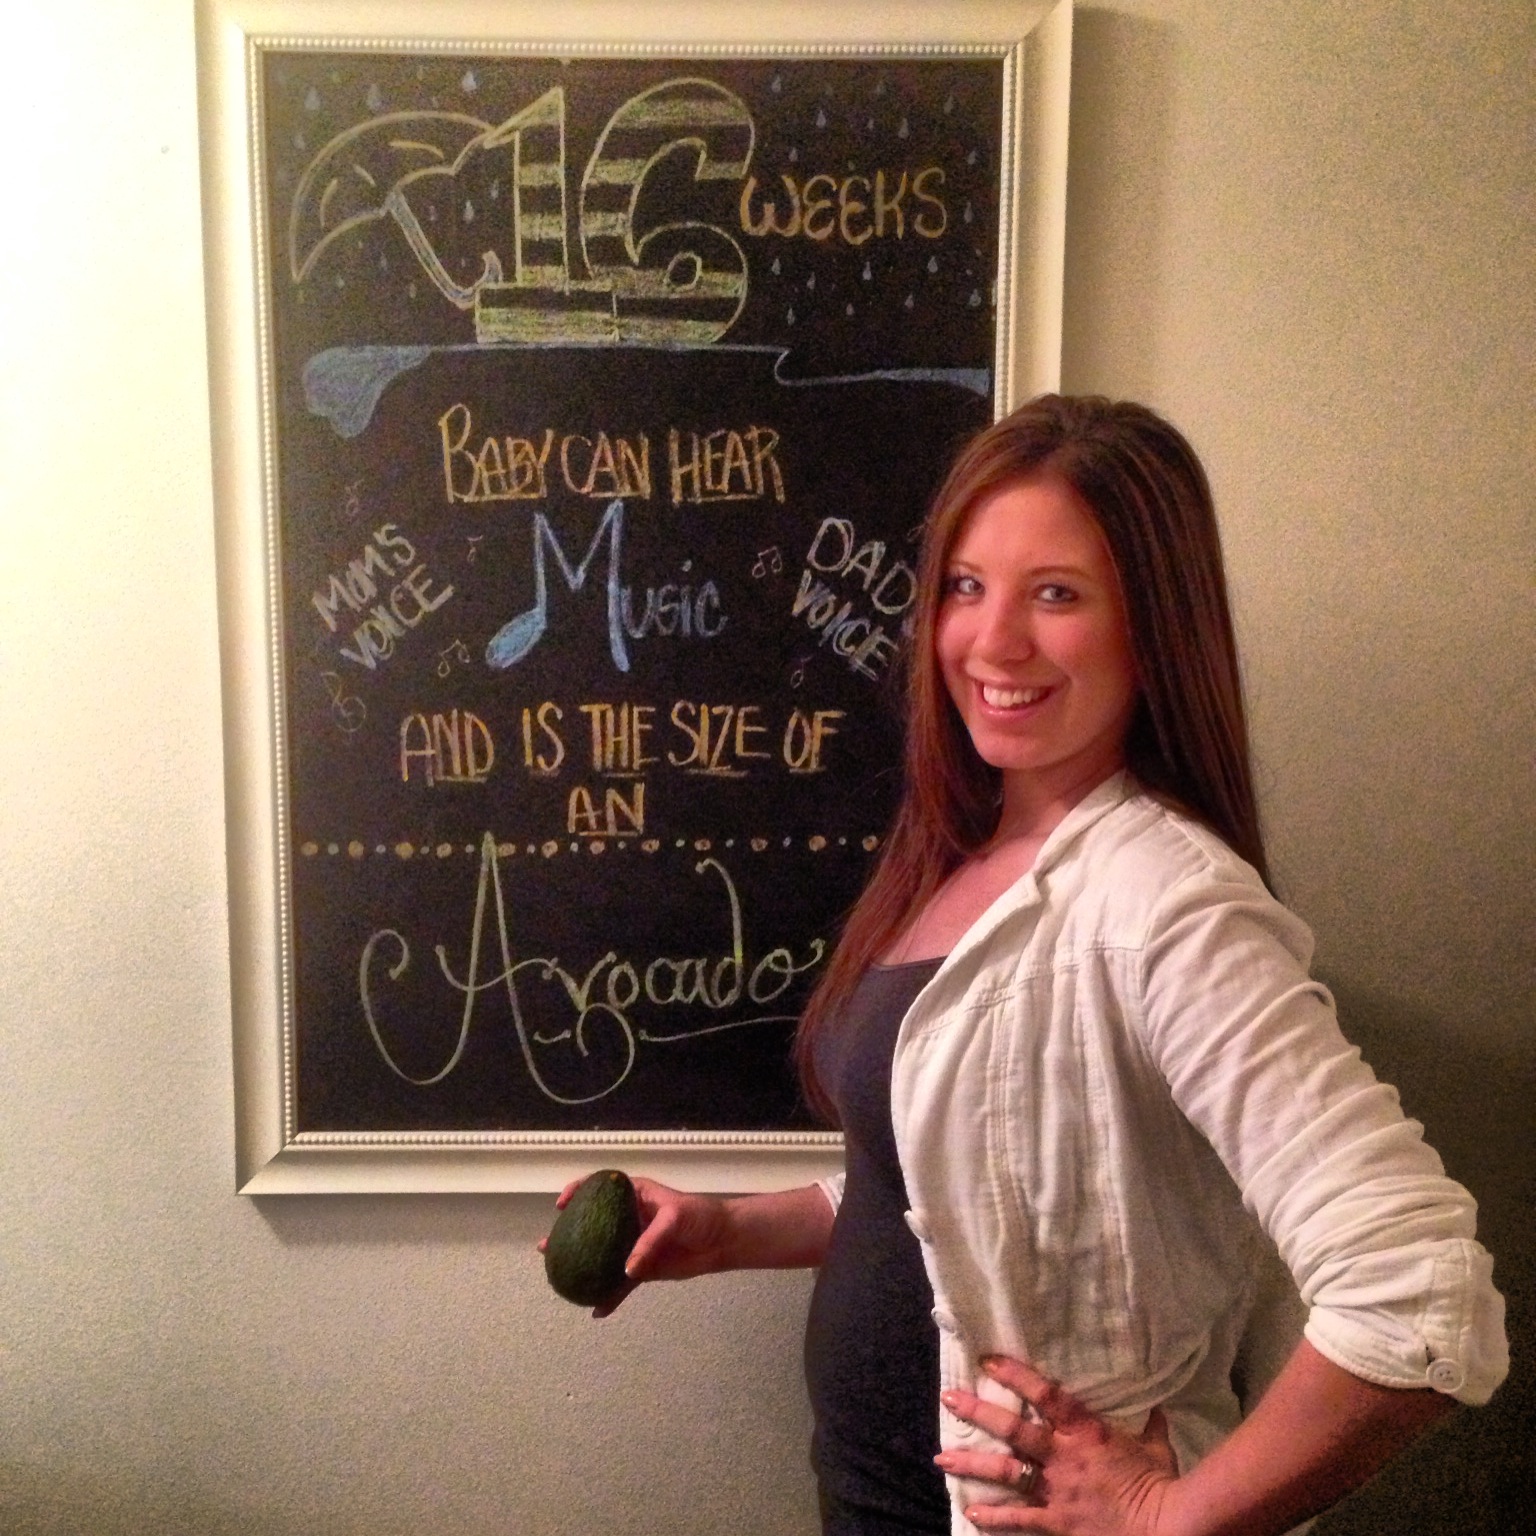 16 WEEKS
BABY CAN HEAR
MOM'S
VOICE
MUSIC
DAD
VOICE
AND IS THE SIZE OF
AN
Avocado